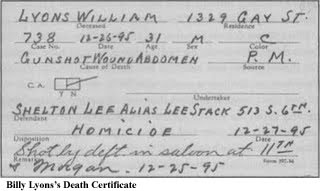 LYONS WILLIAM 1329 GAY ST.
Deceased Residence
738 12-26-95 31 M C
Case No. Date Age Sex Color
GUNSHOT WOUND ABDOMEN P. M.
Cause of Death Source
C. A.
Y N
Undertaker
SHELTON LEE ALIAS LEE STACK 513 S. 6TH.
Defendant
HOMICIDE 12-27-95
Disposition Date
Shot by deft in saloon at 11TH
Remarks
& Morgan. 12-25-95
Billy Lyons's Death Certificate